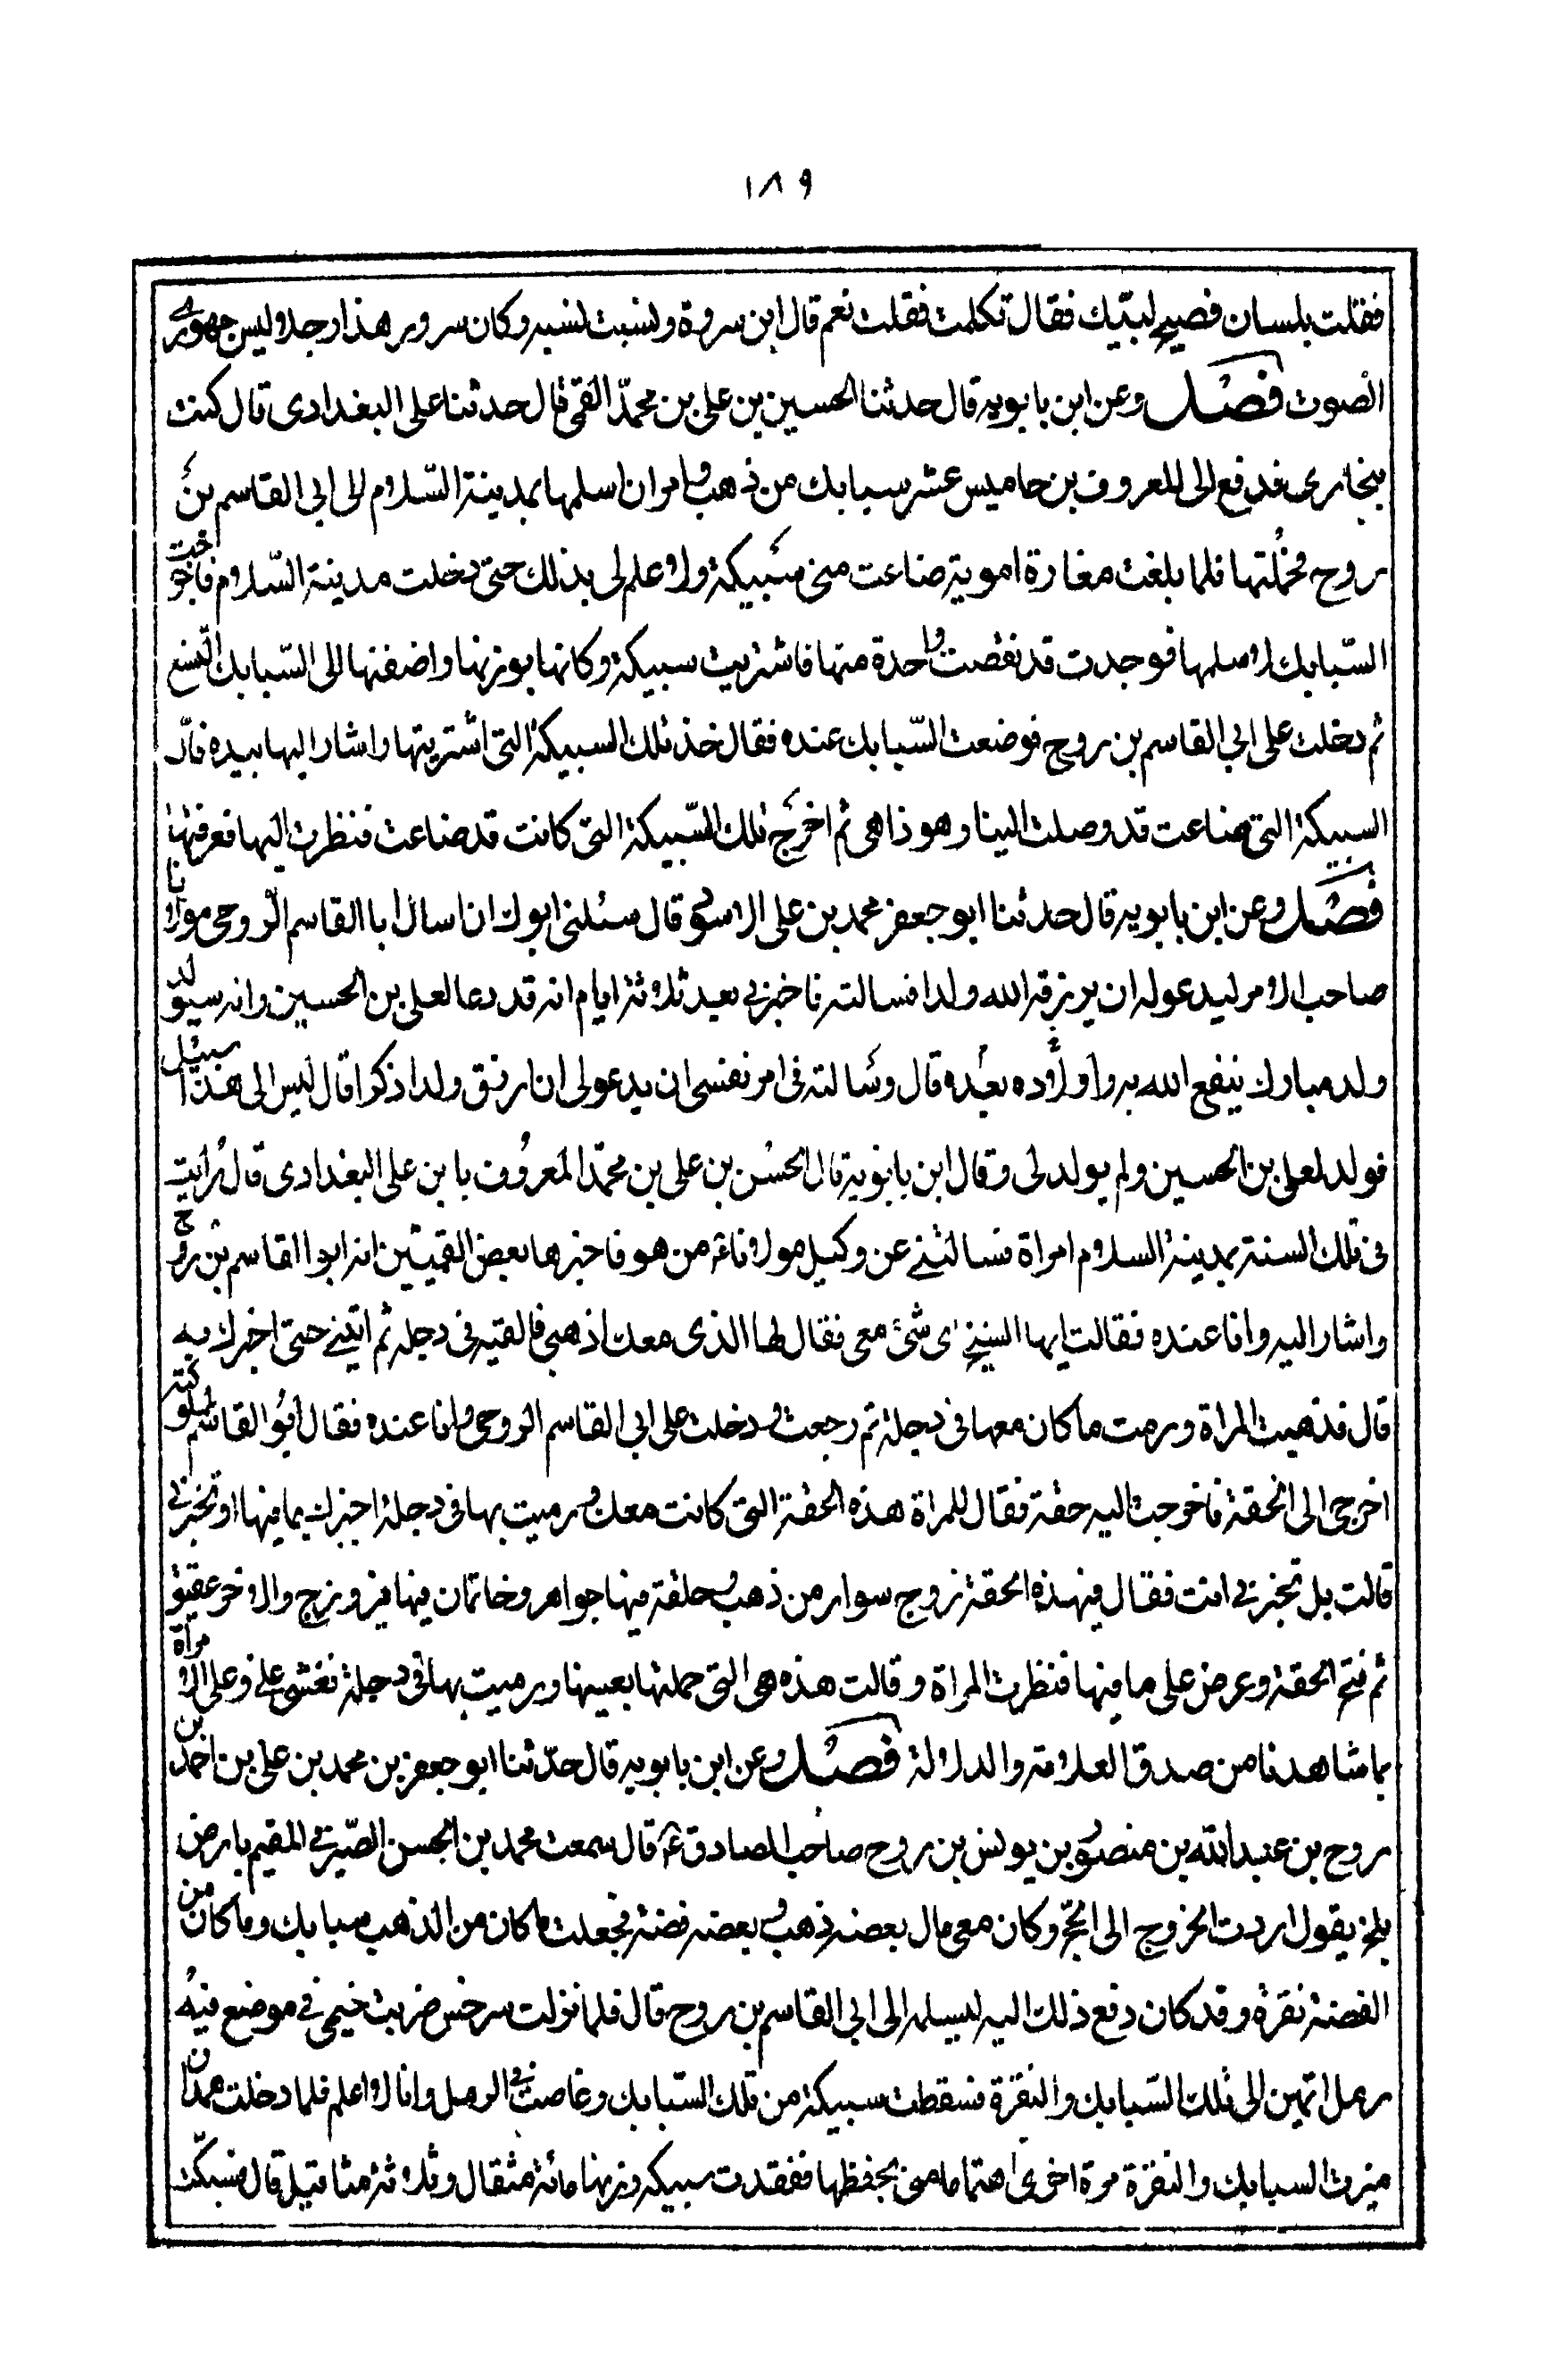 ١٨٩
فقلت بلسان فصيح لبّيك فقال تكلمت فقلت نعم قال ابن سروة ونسبت نسبه وكان سرور هذا رجلا وليس جهوري
الصوت فصل وعن ابن بابويه قال حدثنا الحسين بن علي بن محمّد القمي قال حدثنا علي البغدادى قال كنت
ببخارى فدفع الى المعروف بن حاميس عشر سبايك من ذهب وامر ان اسلمها بمدينة السّلام الى ابي القاسم بن
روح فحملتها فلما بلغت مغارة اموية ضاعت مني سبيكة ولا علم لى بذلك حتى دخلت مدينة السّلام فاخرجت
السّبايك لاوسلمها فوجدت قد نقصت واحدة منها فاشتريت سبيكة وكانها بوزنها واضفتها الى السّبايك التسع
ثم دخلت على ابي القاسم بن روح فوضعت السّبايك عنده فقال خذ تلك السبيكة التى اشتريتها واشار اليها بيده فانّ
السبيكة التي ضاعت قد وصلت الينا وهو ذا هي ثم اخرج تلك السّبيكة التى كانت قد ضاعت فنظرت اليها فعرفتها
فصل وعن ابن بابويه قال حدثنا ابو جعفر محمد بن علي الاسود قال سئلنى ابوك ان اسال ابا القاسم الرّوحى مولانا
صاحب الامر ليدعو له ان يرزقه الله ولدا فسالته فاخبرني بعد ثلاثة ايام انه قد دعا لعلى بن الحسين وانه سيولد
ولد مبارك ينفع الله به واولاده بعده قال وسالته فى امر نفسى ان يدعو لى ان ارزق ولدا ذكرا قال ليس الى هذا سبيل
فولد لعلي بن الحسين ولم يولد لى وقال ابن بابويه قال الحسن بن علي بن محمّد المعروف بابن على البغدادى قال رايت
فى تلك السنة بمدينة السلام امراة فسالتني عن وكيل مولانا ع من هو فاخبرها بعض القميّين انه ابوا القاسم بن روح
واشار اليه وانا عنده فقالت ايها الشيخ اى شئ معي فقال لها الذى معك اذهبي فالقيه فى دجله ثم ايتيني حتى اخبرك به
قال فذهبت المراة ورمت ما كان معها في دجلة ثم رجعت ودخلت على ابي القاسم الروحى وانا عنده فقال ابو القاسم لمملوكته
اخرجي الى الحقة فاخرجت اليه حقة فقال للمراة هذه الحقة التى كانت معك ورميت بها فى دجلة اخبرك بما فيها او تخبرني
قالت بل تخبرني انت فقال في هذه الحقة زوج سوار من ذهب وحلقة فيها جواهر وخاتمان فيها فيروزج والاخر عقيق
ثم فتح الحقة وعرض على ما فيها فنظرت المراة وقالت هذه هي التى حملتها بعينها ورميت بها في دجلة فغشي علي وعلى المراة
بما شاهدنا من صدق العلامة والدلالة فصل وعن ابن بابويه قال حدّثنا ابو جعفر بن محمد بن علي بن احمد بن
روح بن عبد الله بن منصور بن يونس بن روح صاحب الصادق ع قال سمعت محمد بن الحسن الصّيرفي المقيم بارض
بلخ يقول اردت الخروج الى الحج وكان معي مال بعضه ذهب وبعضه فضة فجعلت ما كان من الذهب سبايك وما كان من
الفضة نقرة وقد كان دفع ذلك اليه ليسلمه الى ابي القاسم بن روح قال فلما نزلت سرخس ضربت خيمي في موضع فيه
رمل اتميز الى تلك السّبايك والنقرة فسقطت سبيكة من تلك السّبايك وغاصت في الرمل وانا لا اعلم فلما دخلت همدان
ميزت السبايك والنقرة مرة اخرى اهتماما مني بحفظها ففقدت سبيكه وزنها مائة مثقال وثلاثة مثاقيل قال فسبكت